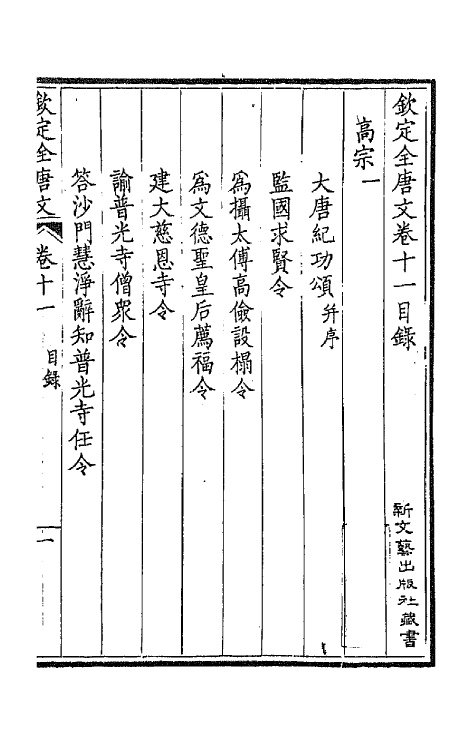 欽定全唐文卷十一目錄
新文藝出版社藏書
高宗一
大唐紀功頌并序
監國求賢令
爲攝太傅高儉設榻令
爲文德聖皇后薦福令
建大慈恩寺令
諭普光寺僧衆令
答沙門慧淨辭知普光寺任令
欽定全唐文 卷十一 目錄 一